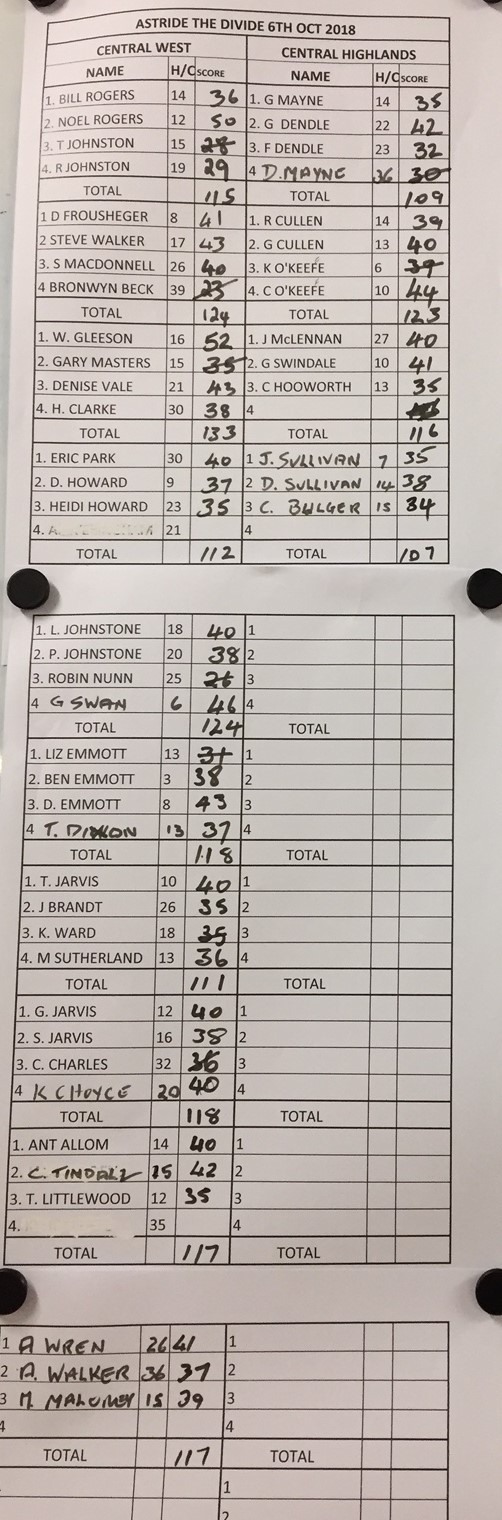 ASTRIDE THE DIVIDE 6TH OCT 2018
CENTRAL WEST CENTRAL HIGHLANDS
NAME H/C SCORE NAME H/C SCORE
1. BILL ROGERS 14 36 1. G MAYNE 14 35
2. NOEL ROGERS 12 50 2. G DENDLE 22 42
3. T JOHNSTON 15 28 3. F DENDLE 23 32
4. R JOHNSTON 19 29 4 D. MAYNE 36 30
TOTAL 115 TOTAL 109
1 D FROUSHEGER 8 41 1. R CULLEN 14 39
2 STEVE WALKER 17 43 2. G CULLEN 13 40
3. S MACDONNELL 26 40 3. K O'KEEFE 6 37
4 BRONWYN BECK 39 23 4. C O'KEEFE 10 44
TOTAL 124 TOTAL 123
1. W. GLEESON 16 52 1. J McLENNAN 27 40
2. GARY MASTERS 15 35 2. G SWINDALE 10 41
3. DENISE VALE 21 43 3. C HOOWORTH 13 35
4. H. CLARKE 30 38 4
TOTAL 133 TOTAL 116
1. ERIC PARK 30 40 1 J. SULLIVAN 7 35
2. D. HOWARD 9 37 2 D. SULLIVAN 14 38
3. HEIDI HOWARD 23 35 3 C. BULGER 15 34
4. 21 4
TOTAL 112 TOTAL 107
1. L. JOHNSTONE 18 40 1
2. P. JOHNSTONE 20 38 2
3. ROBIN NUNN 25 26 3
4 G SWAN 6 46 4
TOTAL 124 TOTAL
1. LIZ EMMOTT 13 31 1
2. BEN EMMOTT 3 38 2
3. D. EMMOTT 8 43 3
4 T. DIXON 13 37 4
TOTAL 118 TOTAL
1. T. JARVIS 10 40 1
2. J BRANDT 26 35 2
3. K. WARD 18 35 3
4. M SUTHERLAND 13 36 4
TOTAL 111 TOTAL
1. G. JARVIS 12 40 1
2. S. JARVIS 16 38 2
3. C. CHARLES 32 36 3
4 K CHOYCE 20 40 4
TOTAL 118 TOTAL
1. ANT ALLOM 14 40 1
2. C. TINDALL 15 42 2
3. T. LITTLEWOOD 12 35 3
4. 35 4
TOTAL 117 TOTAL
1 A WREN 26 41 1
2 A. WALKER 36 37 2
3 M. MAHONEY 15 39 3
4 4
TOTAL 117 TOTAL
1
2